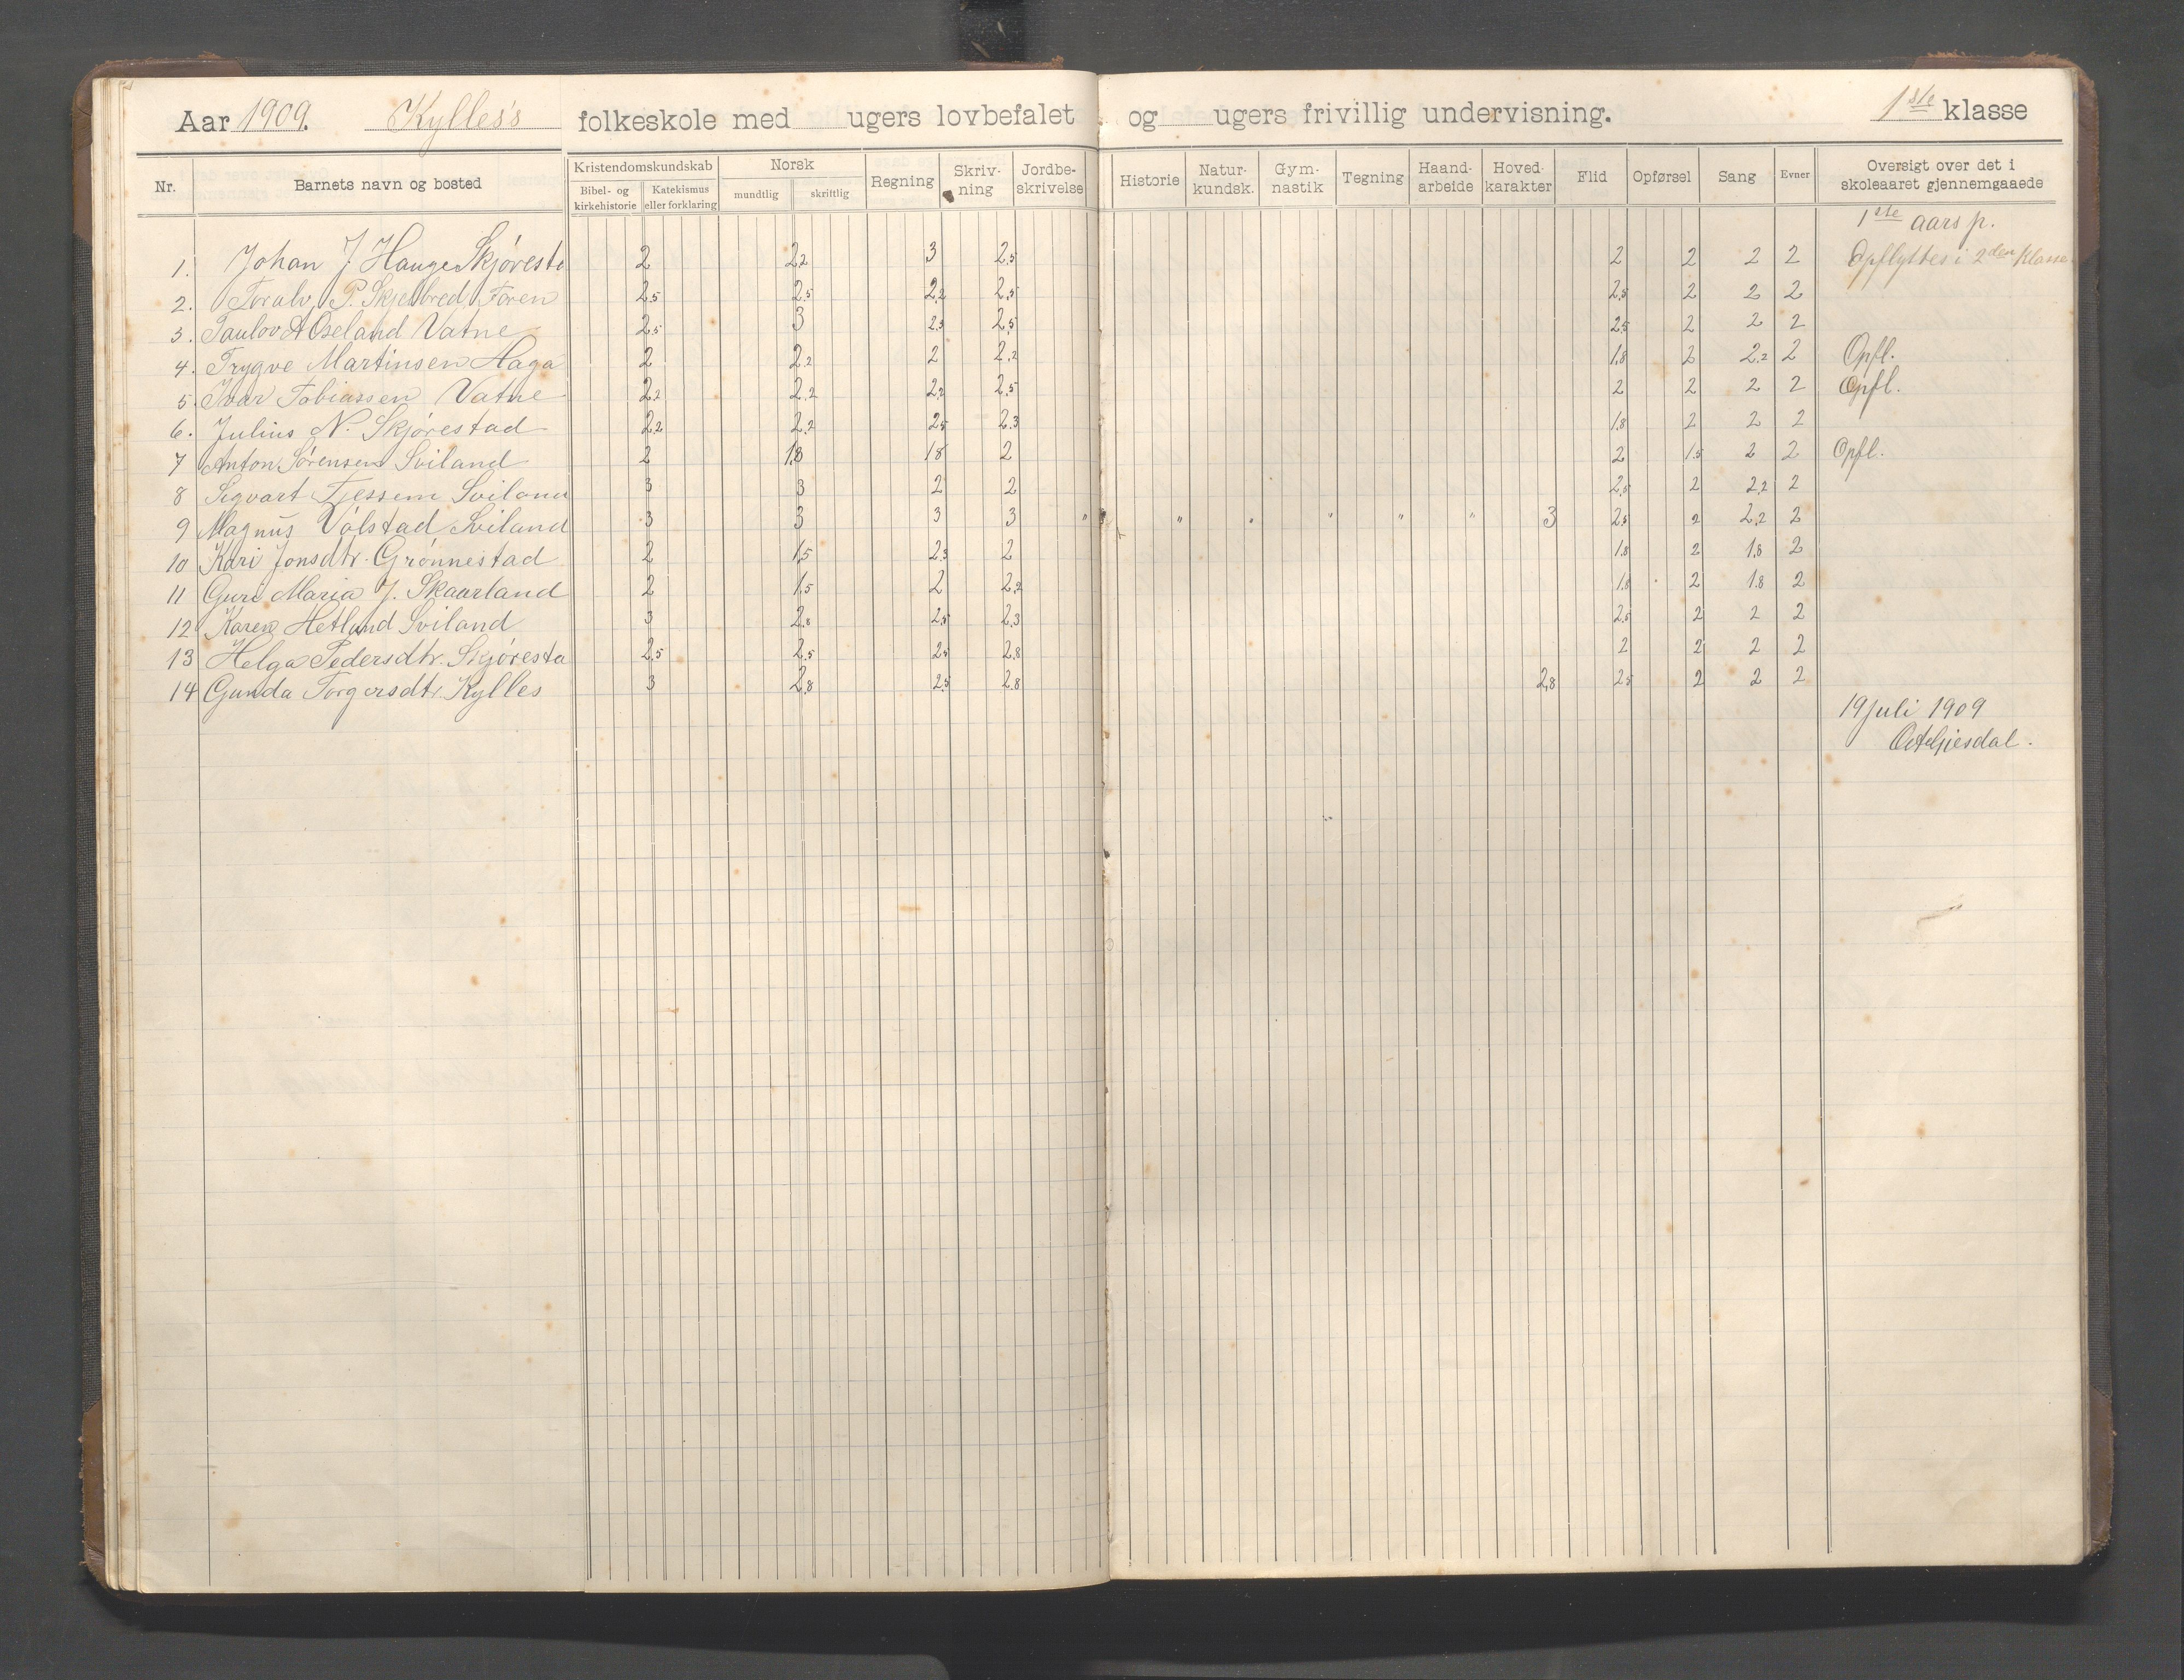 Aar 1909. Kylles's folkeskole med ugers lovbefalet og ugers frivillig undervisning. 1ste klasse
Nr. Barnets navn og bosted Kristendomskundskab Bibel- og kirkehistorie Katekismus eller forklaring Norsk mundtlig skriftlig Regning Skriv-ning Jordbe-skrivelse Historie Natur-kundsk. Gym-nastik Tegning Haand-arbeide Hoved-karakter Flid Opførsel Sang Evner Oversigt over det i skoleaaret gjennemgaaede
1ste aars p.
1. Johan J Hauge Skjøresta 2 2,2 3 2,5 2 2 2 2 Opflyttes i 2den Klasse
2. Toralv P. Skjelbred Foren 2,5 2,5 2,2 2,5 2,5 2 2 2
3. Paulov A Oseland Vatne 2,5 3 2,3 2,5 2,5 2 2 2
4. Trygve Martinsen Haga 2 2,2 2 2,2 1,8 2 2,2 2 Opfl.
5. Ivar Tobiassen Vatne 2,2 2,2 2,2 2,5 2 2 2 2 Opfl.
6. Julius N. Skjørestad 2,2 2,2 2,5 2,3 1,8 2 2 2
7 Anton Sørensen Sviland 2 1,8 1,8 2 2 1,5 2 2 Opfl.
8 Sigvart Tjessem Sviland 3 3 2 2 2,5 2 2,2 2
9 Magnus Vølstad Sviland 3 3 3 3 " " " " " " 3 2,5 2 2,2 2
10 Kari Jonsdtr. Grønnestad 2 1,5 2,3 2 1,8 2 1,8 2
11 Guri Maria J. Skaarland 2 1,5 2 2,2 1,8 2 1,8 2
12 Karen Hetland Sviland 3 2,8 2,5 2,3 2,5 2 2 2
13 Helga Pedersdtr. Skjøresta 2,5 2,5 2,5 2,8 2 2 2 2
14 Gunda Torgersdtr. Kylles 3 2,8 2,5 2,8 2,8 2,5 2 2 2
19 juli 1909